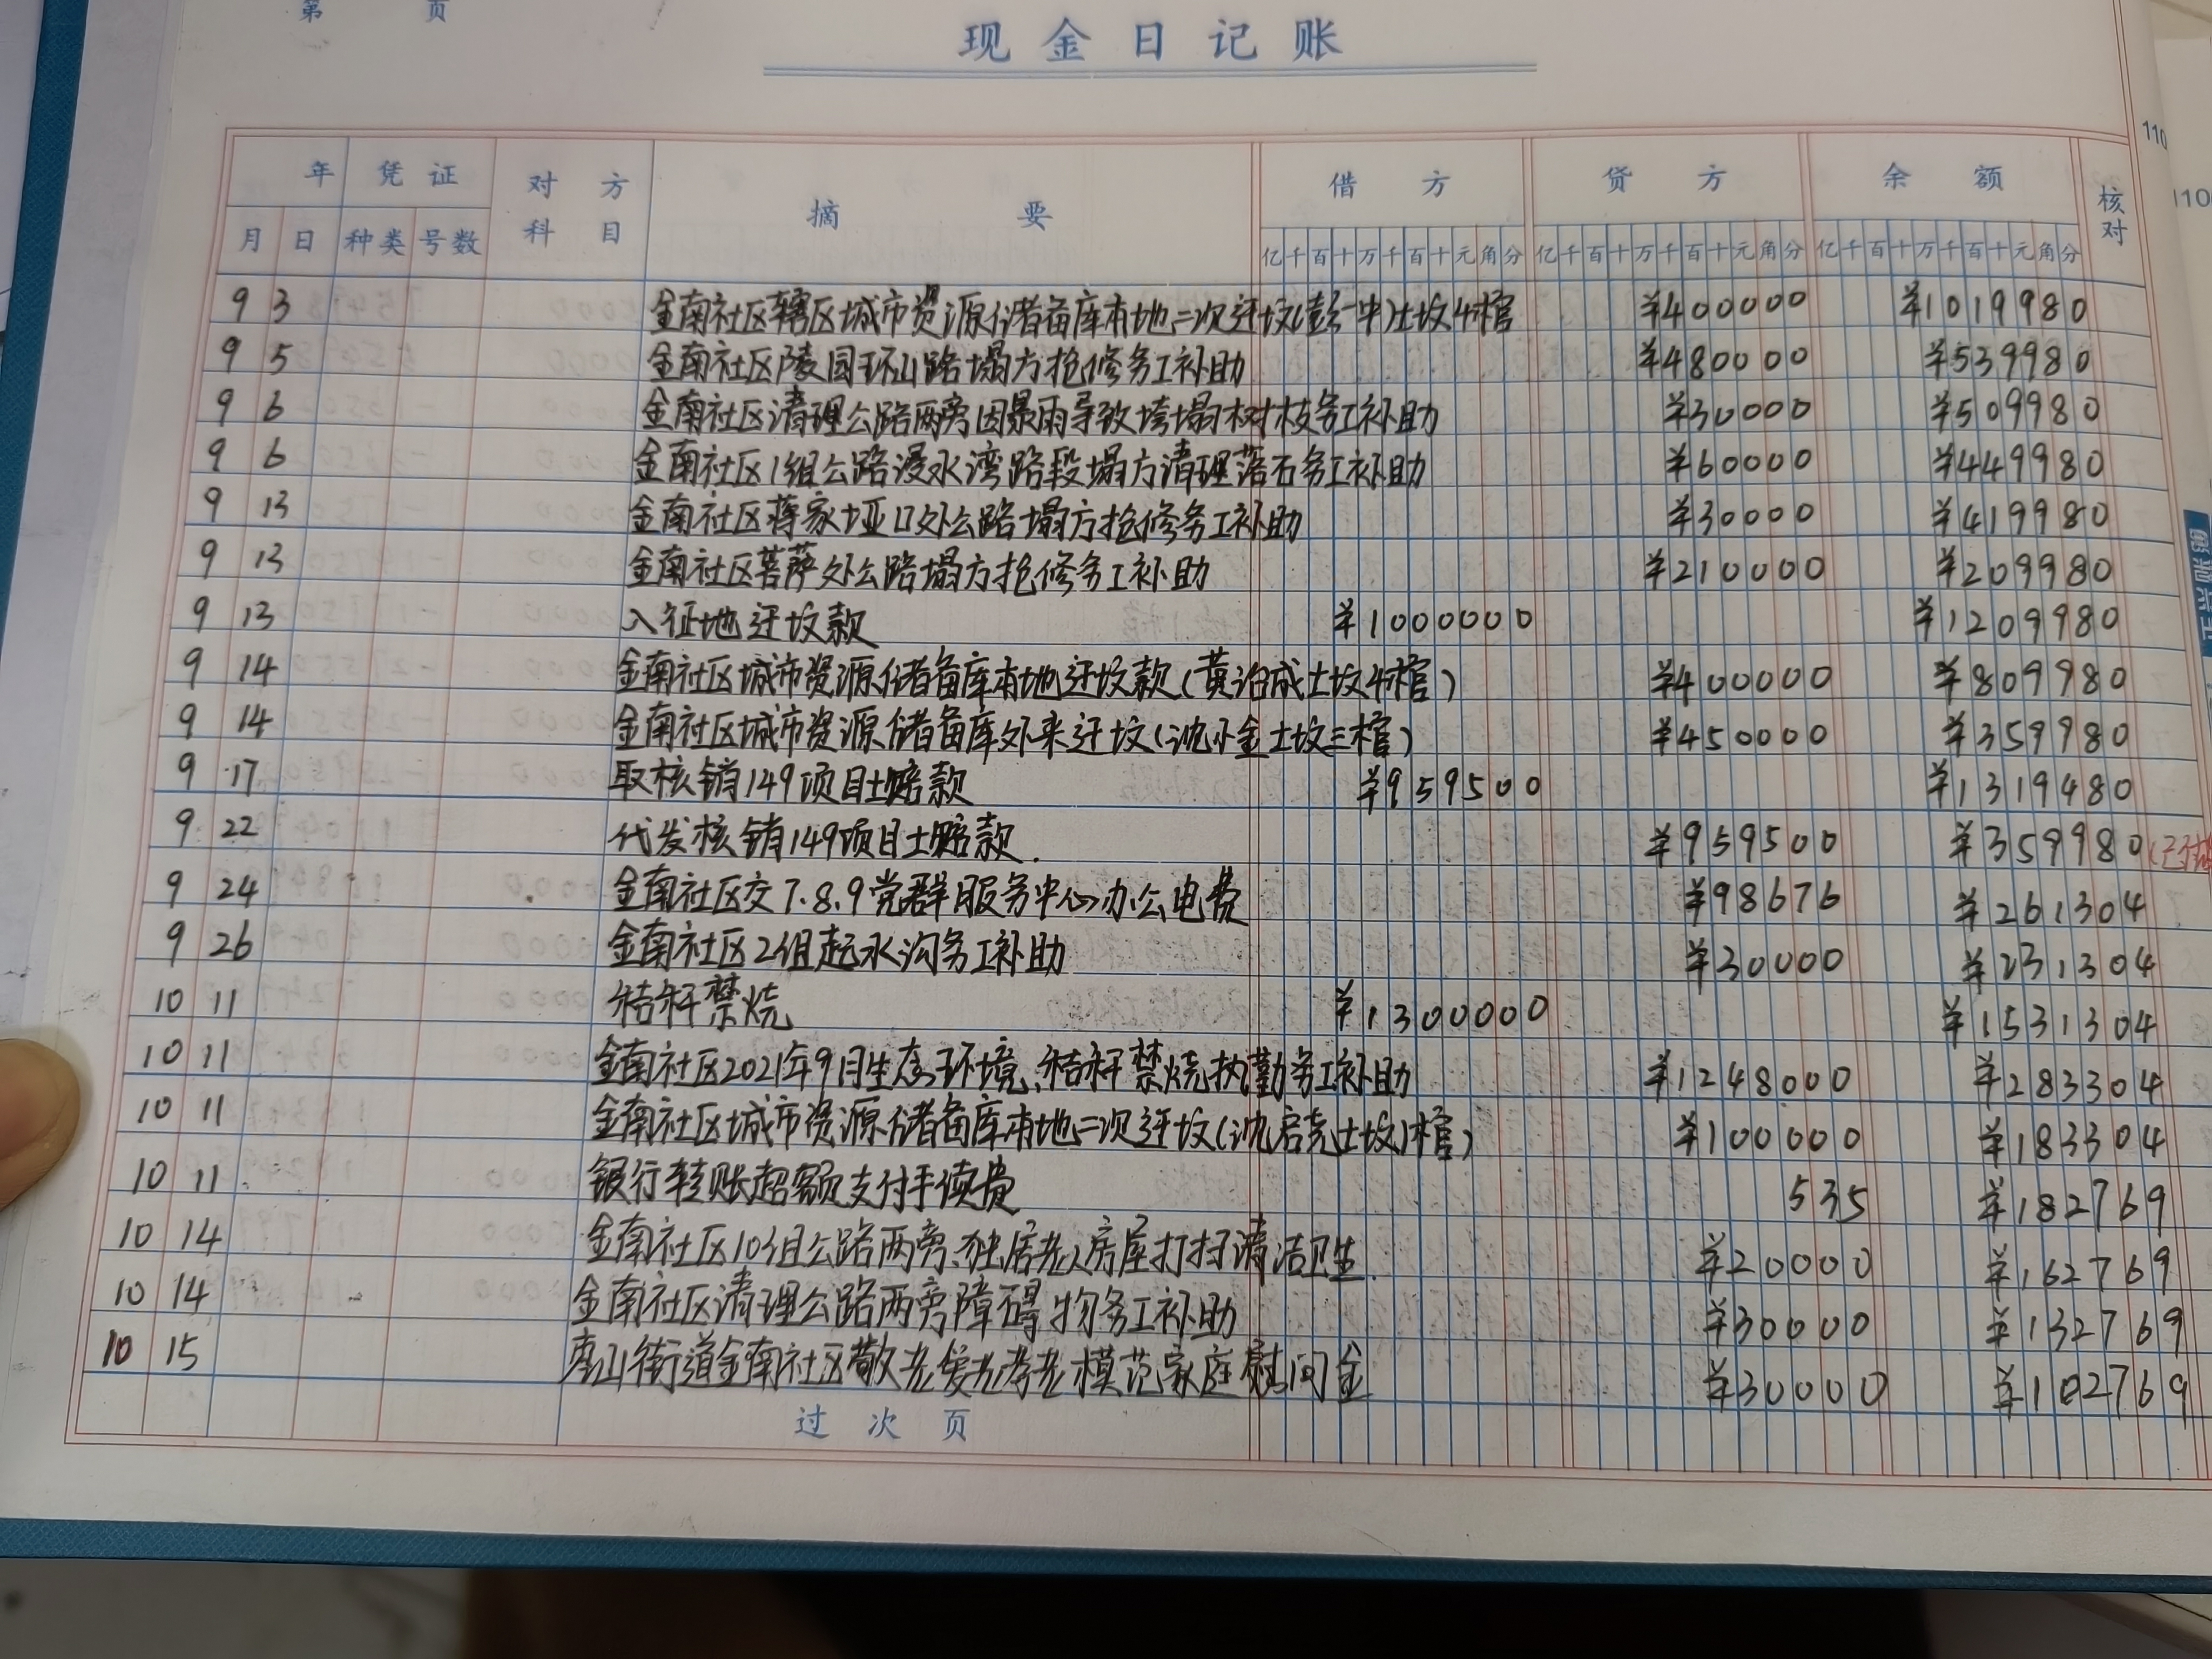 第 页
现金日记账
年 凭证 对方科目 摘要 借方 贷方 余额 核对
月 日 种类 号数 亿千百十万千百十元角分 亿千百十万千百十元角分 亿千百十万千百十元角分
9 3 金南社区辖区城市资源储备库本地二次迁坟(彭一中)土坟4棺 ¥400000 ¥1019980
9 5 金南社区陵园环山路塌方抢修务工补助 ¥480000 ¥539980
9 6 金南社区清理公路两旁因暴雨导致垮塌树枝务工补助 ¥30000 ¥509980
9 6 金南社区1组公路浸水湾路段塌方清理落石务工补助 ¥60000 ¥449980
9 13 金南社区蒋家垭口处公路塌方抢修务工补助 ¥30000 ¥419980
9 13 金南社区菩萨处公路塌方抢修务工补助 ¥210000 ¥209980
9 13 入征地迁坟款 ¥1000000 ¥1209980
9 14 金南社区城市资源储备库本地迁坟款(黄治成土坟4棺) ¥400000 ¥809980
9 14 金南社区城市资源储备库外来迁坟(沈小金土坟三棺) ¥450000 ¥359980
9 17 取核销149项目土赔款 ¥959500 ¥1319480
9 22 代发核销149项目土赔款. ¥959500 ¥359980
9 24 金南社区交7.8.9党群服务中心办公电费 ¥98676 ¥261304
9 26 金南社区2组起水沟务工补助 ¥30000 ¥231304
10 11 秸秆禁烧 ¥1300000 ¥1531304
10 11 金南社区2021年9月生态环境、秸秆禁烧执勤务工补助 ¥1248000 ¥283304
10 11 金南社区城市资源储备库本地二次迁坟(沈启尧土坟1棺) ¥100000 ¥183304
10 11 银行转账超额支付手续费 535 ¥182769
10 14 金南社区10组公路两旁、独居老人房屋打扫清洁卫生. ¥20000 ¥162769
10 14 金南社区清理公路两旁障碍物务工补助 ¥30000 ¥132769
10 15 街道金南社区敬老爱老孝老模范家庭慰问金 ¥30000 ¥102769
过次页
110
110